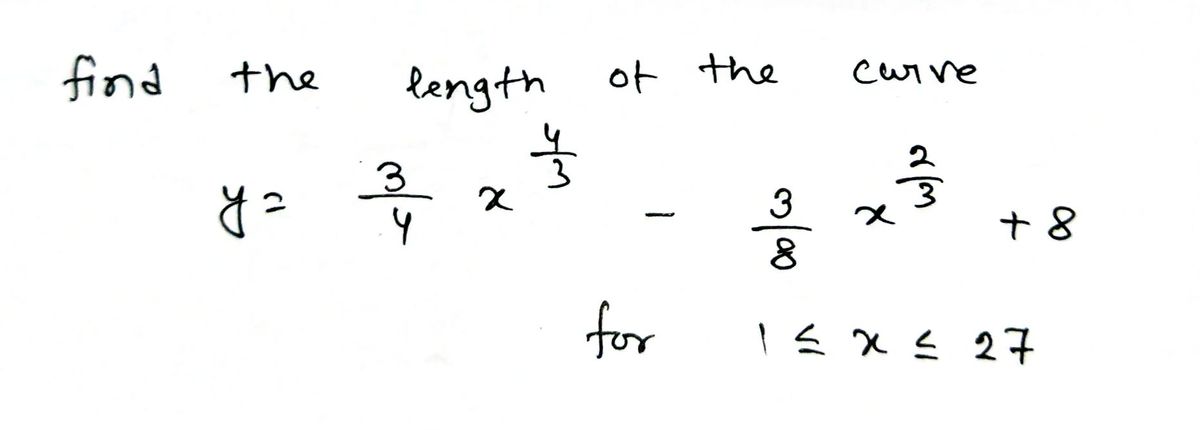 find the length of the curve
y = 3/4 x^4/3 - 3/8 x^2/3 + 8
for 1 ≤ x ≤ 27